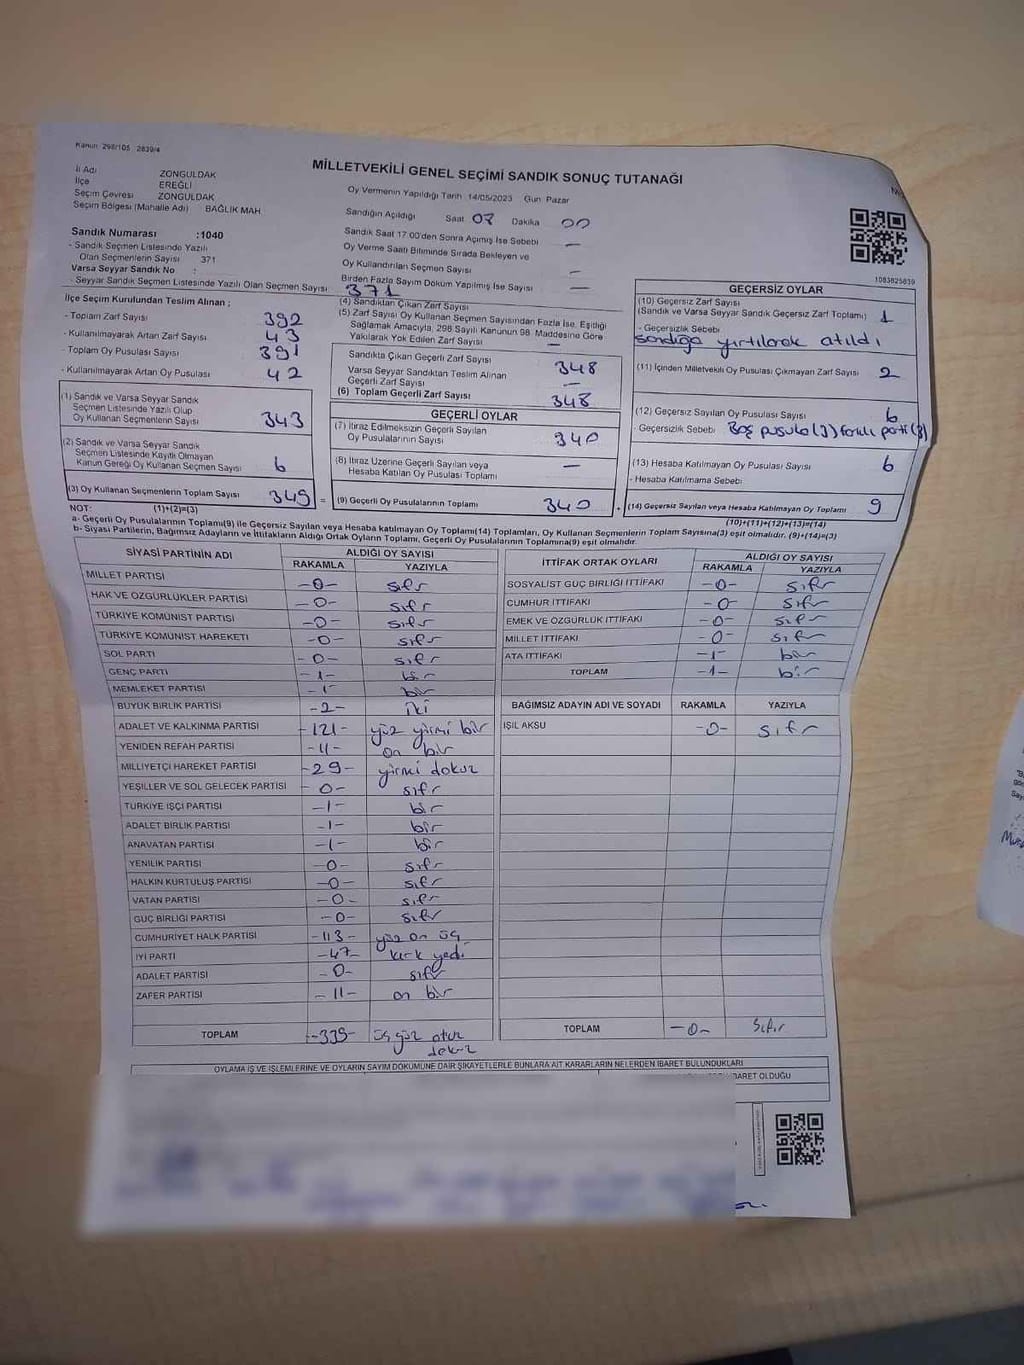 Kanun 298/105 2839/4
MİLLETVEKİLİ GENEL SEÇİMİ SANDIK SONUÇ TUTANAĞI
İl Adı ZONGULDAK
İlçe EREĞLİ
Seçim Çevresi ZONGULDAK
Seçim Bölgesi (Mahalle Adı) BAĞLIK MAH
Oy Vermenin Yapıldığı Tarih 14/05/2023 Gün Pazar
Sandığın Açıldığı Saat 07 Dakika 00
Sandık Saat 17:00'den Sonra Açılmış İse Sebebi —
Oy Verme Saati Bitiminde Sırada Bekleyen ve
Oy Kullandırılan Seçmen Sayısı —
Birden Fazla Sayım Döküm Yapılmış İse Sayısı —
Sandık Numarası :1040
- Sandık Seçmen Listesinde Yazılı
Olan Seçmenlerin Sayısı 371
Varsa Seyyar Sandık No :
- Seyyar Sandık Seçmen Listesinde Yazılı Olan Seçmen Sayısı
371
1083825839
İlçe Seçim Kurulundan Teslim Alınan ;
- Toplam Zarf Sayısı 392
- Kullanılmayarak Artan Zarf Sayısı 43
- Toplam Oy Pusulası Sayısı 391
- Kullanılmayarak Artan Oy Pusulası 42
(1) Sandık ve Varsa Seyyar Sandık
Seçmen Listesinde Yazılı Olup
Oy Kullanan Seçmenlerin Sayısı 343
(2) Sandık ve Varsa Seyyar Sandık
Seçmen Listesinde Kayıtlı Olmayan
Kanun Gereği Oy Kullanan Seçmen Sayısı 6
(3) Oy Kullanan Seçmenlerin Toplam Sayısı 349
(4) Sandıktan Çıkan Zarf Sayısı
(5) Zarf Sayısı Oy Kullanan Seçmen Sayısından Fazla İse, Eşitliği
Sağlamak Amacıyla, 298 Sayılı Kanunun 98. Maddesine Göre
Yakılarak Yok Edilen Zarf Sayısı —
Sandıkta Çıkan Geçerli Zarf Sayısı 348
Varsa Seyyar Sandıktan Teslim Alınan
Geçerli Zarf Sayısı —
(6) Toplam Geçerli Zarf Sayısı 348
GEÇERLİ OYLAR
(7) İtiraz Edilmeksizin Geçerli Sayılan
Oy Pusulalarının Sayısı 340
(8) İtiraz Üzerine Geçerli Sayılan veya
Hesaba Katılan Oy Pusulası Toplamı —
= (9) Geçerli Oy Pusulalarının Toplamı 340
GEÇERSİZ OYLAR
(10) Geçersiz Zarf Sayısı
(Sandık ve Varsa Seyyar Sandık Geçersiz Zarf Toplamı) 1
- Geçersizlik Sebebi
sandığa yırtılarak atıldı
(11) İçinden Milletvekili Oy Pusulası Çıkmayan Zarf Sayısı 2
(12) Geçersiz Sayılan Oy Pusulası Sayısı 6
- Geçersizlik Sebebi Boş pusula(3) farklı parti(3)
(13) Hesaba Katılmayan Oy Pusulası Sayısı 6
- Hesaba Katılmama Sebebi
+ (14) Geçersiz Sayılan veya Hesaba Katılmayan Oy Toplamı 9
NOT: (1)+(2)=(3)
(10)+(11)+(12)+(13)=(14)
a- Geçerli Oy Pusulalarının Toplamı(9) ile Geçersiz Sayılan veya Hesaba katılmayan Oy Toplamı(14) Toplamları, Oy Kullanan Seçmenlerin Toplam Sayısına(3) eşit olmalıdır. (9)+(14)=(3)
b- Siyasi Partilerin, Bağımsız Adayların ve İttifakların Aldığı Ortak Oyların Toplamı, Geçerli Oy Pusulalarının Toplamına(9) eşit olmalıdır.
SİYASİ PARTİNİN ADI ALDIĞI OY SAYISI
RAKAMLA YAZIYLA
MİLLET PARTİSİ -0- sıfır
HAK VE ÖZGÜRLÜKLER PARTİSİ -0- sıfır
TÜRKİYE KOMÜNİST PARTİSİ -0- sıfır
TÜRKİYE KOMÜNİST HAREKETİ -0- sıfır
SOL PARTİ -0- sıfır
GENÇ PARTİ -1- bir
MEMLEKET PARTİSİ -1- bir
BÜYÜK BİRLİK PARTİSİ -2- iki
ADALET VE KALKINMA PARTİSİ -121- yüz yirmi bir
YENİDEN REFAH PARTİSİ -11- on bir
MİLLİYETÇİ HAREKET PARTİSİ -29- yirmi dokuz
YEŞİLLER VE SOL GELECEK PARTİSİ -0- sıfır
TÜRKİYE İŞÇİ PARTİSİ -1- bir
ADALET BİRLİK PARTİSİ -1- bir
ANAVATAN PARTİSİ -1- bir
YENİLİK PARTİSİ -0- sıfır
HALKIN KURTULUŞ PARTİSİ -0- sıfır
VATAN PARTİSİ -0- sıfır
GÜÇ BİRLİĞİ PARTİSİ -0- sıfır
CUMHURİYET HALK PARTİSİ -113- yüz on üç
İYİ PARTİ -47- kırk yedi
ADALET PARTİSİ -0- sıfır
ZAFER PARTİSİ -11- on bir
TOPLAM -339- üç yüz otuz
dokuz
İTTİFAK ORTAK OYLARI ALDIĞI OY SAYISI
RAKAMLA YAZIYLA
SOSYALİST GÜÇ BİRLİĞİ İTTİFAKI -0- sıfır
CUMHUR İTTİFAKI -0- sıfır
EMEK VE ÖZGÜRLÜK İTTİFAKI -0- sıfır
MİLLET İTTİFAKI -0- sıfır
ATA İTTİFAKI -1- bir
TOPLAM -1- bir
BAĞIMSIZ ADAYIN ADI VE SOYADI RAKAMLA YAZIYLA
IŞIL AKSU -0- sıfır
TOPLAM -0- sıfır
OYLAMA İŞ VE İŞLEMLERİNE VE OYLARIN SAYIM DÖKÜMÜNE DAİR ŞİKAYETLERLE BUNLARA AİT KARARLARIN NELERDEN İBARET BULUNDUKLARI
İBARET OLDUĞU